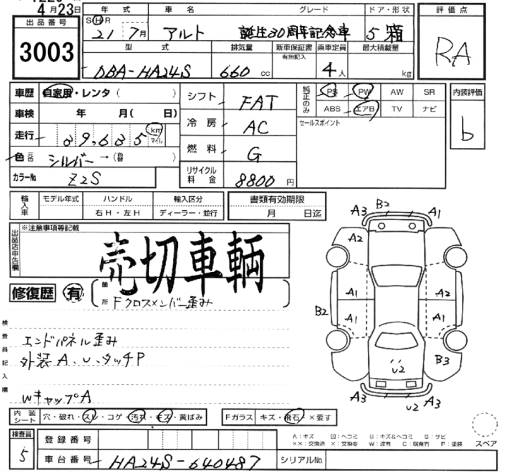 4月23日
出品番号
3003
年式 車名 グレード ドア・形状
S H R 21年 7月 アルト 誕生30周年記念車 5 箱
型式 排気量 新車保証書 有無記録 乗車定員 最大積載量
DBA-HA24S 660 cc 4人 kg
評価点
RA
車歴 自家用・レンタ( )
車検 年 月( 日)
走行 89,635 km マイル
色 シルバー→
カラーNo Z2S
シフト FAT
冷房 AC
燃料 G
リサイクル料金 8800円
純正のみ PS PW AW SR
ABS エアB TV ナビ
セールスポイント
内装評価
b
輸入車 モデル年式 ハンドル 右H・左H 輸入区分 ディーラー・並行
書類有効期限
月 日迄
出品店申告欄
※注意事項等記載
売切車輌
修復歴 有
箇所 Fクロスメンバー歪み
検査員記入欄
エンドパネル歪み
外装A、U、タッチP
WキャップA
A3 B2 A1
A2 A2
B2 A1 A1
A2 B3
U2
A3 U2 A3
内装シート 穴・破れ・スレ・コゲ・汚れ・キズ・黄ばみ
Fガラス キズ・飛石・×要す
検査員
5
登録番号
車台番号 HA24S-640487
シリアルNo.
スペア